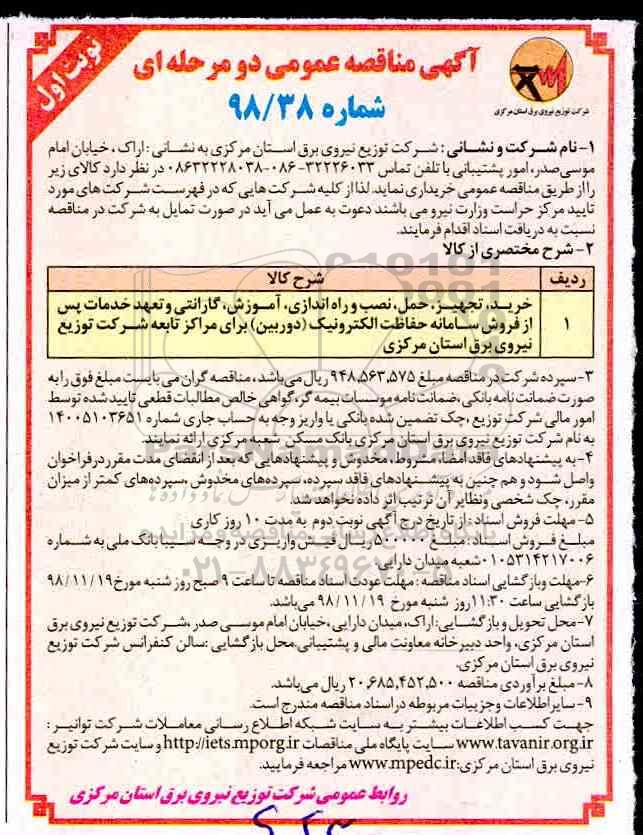 نوبت اول
شرکت توزیع نیروی برق استان مرکزی
آگهی مناقصه عمومی دو مرحله ای
شماره ۹۸/۳۸
۱- نام شرکت و نشانی : شرکت توزیع نیروی برق استان مرکزی به نشانی : اراک ، خیابان امام
موسی صدر، امور پشتیبانی با تلفن تماس ۳۲۲۲۶۰۳۳-۰۸۶-۰۸۶۳۲۲۲۸۰۳۸ در نظر دارد کالای زیر
را از طریق مناقصه عمومی خریداری نماید. لذا از کلیه شرکت هایی که در فهرست شرکت های مورد
تایید مرکز حراست وزارت نیرو می باشند دعوت به عمل می آید در صورت تمایل به شرکت در مناقصه
نسبت به دریافت اسناد اقدام فرمایند.
۲- شرح مختصری از کالا
ردیف شرح کالا
۱ خرید، تجهیز، حمل، نصب و راه اندازی، آموزش، گارانتی و تعهد خدمات پس
از فروش سامانه حفاظت الکترونیک (دوربین) برای مراکز تابعه شرکت توزیع
نیروی برق استان مرکزی
۳- سپرده شرکت در مناقصه مبلغ ۹۴۸,۵۶۳,۵۷۵ ریال می باشد ، مناقصه گران می بایست مبلغ فوق را به
صورت ضمانت نامه بانکی ،ضمانت نامه موسسات بیمه گر، گواهی خالص مطالبات قطعی تایید شده توسط
امور مالی شرکت توزیع ،چک تضمین شده بانکی یا واریز وجه به حساب جاری شماره ۱۴۰۰۵۱۰۳۶۵۱
به نام شرکت توزیع نیروی برق استان مرکزی بانک مسکن شعبه مرکزی ارائه نمایند.
۴- به پیشنهادهای فاقد امضا، مشروط، مخدوش و پیشنهادهایی که بعد از انقضای مدت مقرر در فراخوان
واصل شود و هم چنین به پیشنهادهای فاقد سپرده، سپرده های مخدوش ،سپرده های کمتر از میزان
مقرر، چک شخصی ونظایر آن ترتیب اثر داده نخواهد شد
۵- مهلت فروش اسناد : از تاریخ درج آگهی نوبت دوم به مدت ۱۰ روز کاری
مبلغ فروش اسناد : مبلغ ۵۰۰۰۰۰ ریال فیش واریزی در وجه سیبا بانک ملی به شماره
۰۱۰۵۳۱۴۲۱۷۰۰۶ شعبه میدان دارایی
۶- مهلت وبازگشایی اسناد مناقصه : مهلت عودت اسناد مناقصه تا ساعت ۹ صبح روز شنبه مورخ ۹۸/۱۱/۱۹
بازگشایی ساعت ۱۱:۳۰ روز شنبه مورخ ۹۸/۱۱/۱۹ می باشد.
۷- محل تحویل و بازگشایی: اراک، میدان دارایی ، خیابان امام موسی صدر ،شرکت توزیع نیروی برق
استان مرکزی، واحد دبیرخانه معاونت مالی و پشتیبانی.محل بازگشایی :سالن کنفرانس شرکت توزیع
نیروی برق استان مرکزی.
۸- مبلغ برآوردی مناقصه ۲۰,۶۸۵,۴۵۲,۵۰۰ ریال می باشد.
۹- سایر اطلاعات وجزییات مربوطه در اسناد مناقصه مندرج است.
جهت کسب اطلاعات بیشتر به سایت شبکه اطلاع رسانی معاملات شرکت توانیر :
www.tavanir.org.ir سایت پایگاه ملی مناقصات http://iets.mporg.ir و سایت شرکت توزیع
نیروی برق استان مرکزی: www.mpedc.ir مراجعه فرمایید.
روابط عمومی شرکت توزیع نیروی برق استان مرکزی